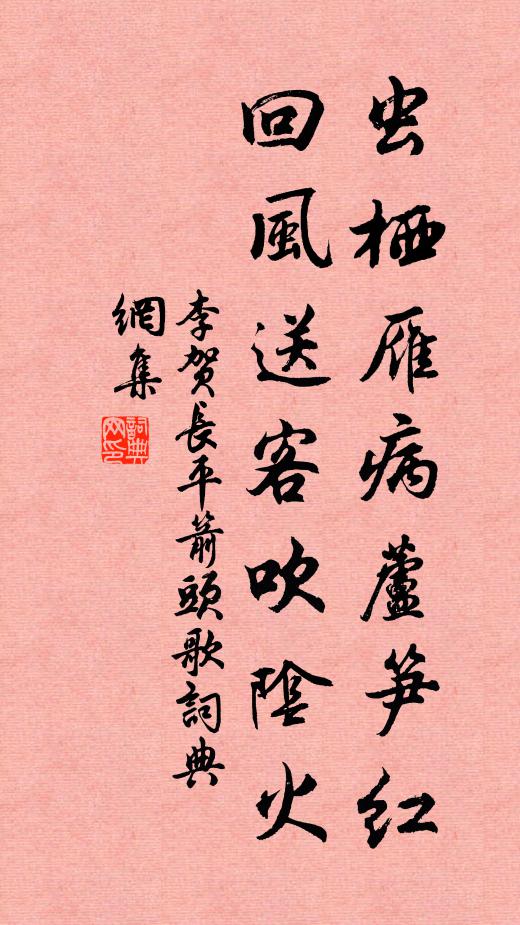 虫栖雁病蘆笋红
回風送客吹陰火
李贺長平箭頭歌詞典
網集
詞典網印